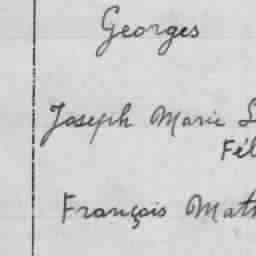 Georges
Joseph Marie
Fél
François Math